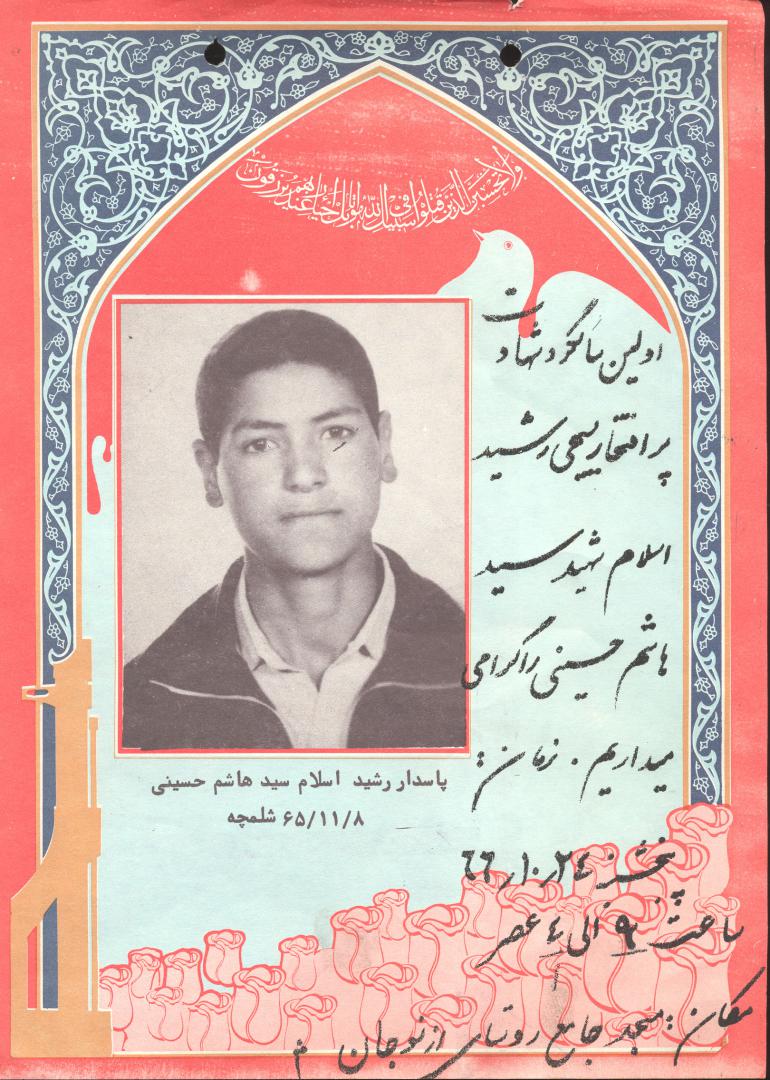 ولا تحسبن الذین قتلوا فی سبیل الله امواتا بل احیاء عند ربهم یرزقون
اولین سالگرد شهادت
پر افتخار بسیجی رشید
اسلام شهید سید
هاشم حسینی را گرامی
میداریم . زمان :
پنجشنبه ٢٤ر١٠ر٦٦
ساعت ٢ الی ٤ عصر
مکان : مسجد جامع روستای ازنوجان
پاسدار رشید اسلام سید هاشم حسینی
۶۵/۱۱/۸ شلمچه